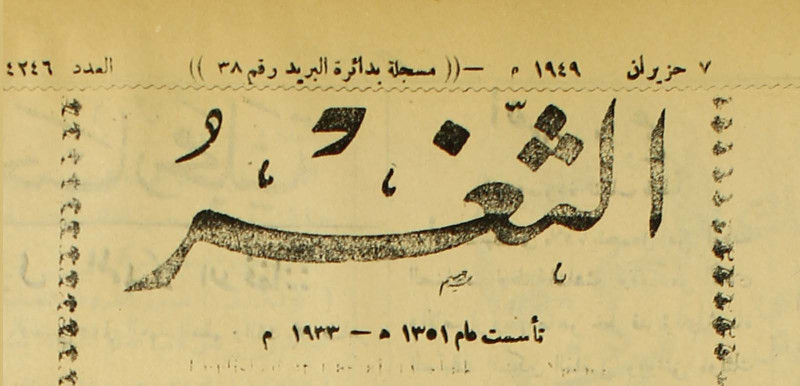 ٧ حزيران ١٩٤٩ م —(( مسجلة بدائرة البريد رقم ٣٨ )) العدد ٤٢٤٦
الثغر
تأسست عام ١٣٥١ ه — ١٩٣٣ م